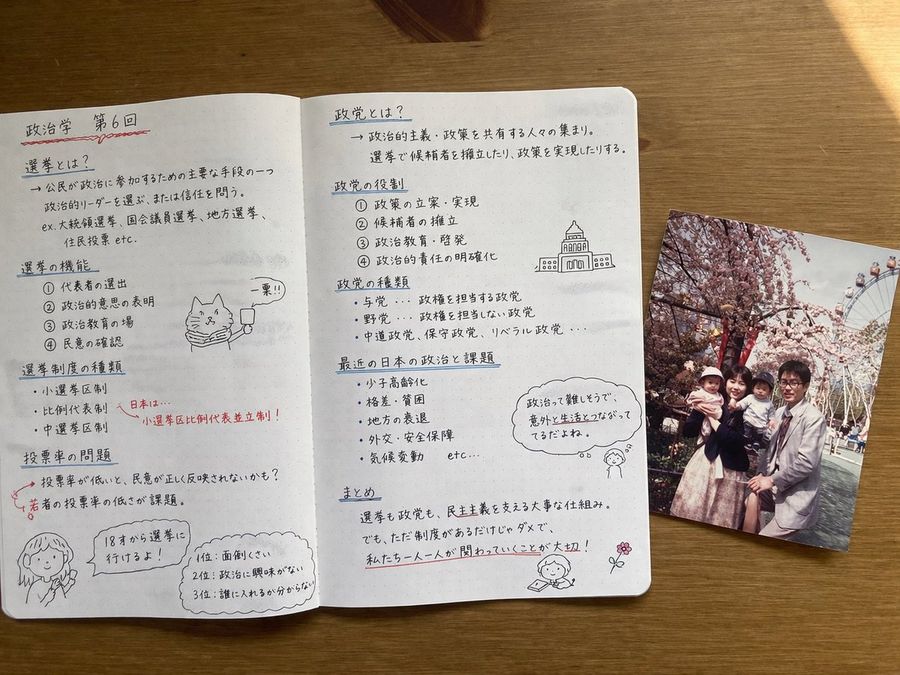 政治学 第6回
選挙とは?
→ 公民が政治に参加するための主要な手段の一つ
政治的リーダーを選ぶ、または信任を問う。
ex. 大統領選挙、国会議員選挙、地方選挙、
住民投票 etc.
選挙の機能
① 代表者の選出
② 政治的意思の表明
③ 政治教育の場
④ 民意の確認
一票!!
選挙制度の種類
・小選挙区制
・比例代表制
・中選挙区制
日本は…
小選挙区比例代表並立制!
投票率の問題
投票率が低いと、民意が正しく反映されないかも?
若者の投票率の低さが課題。
18才から選挙に
行けるよ!
1位:面倒くさい
2位:政治に興味がない
3位:誰に入れるか分からない
政党とは?
→ 政治的主義・政策を共有する人々の集まり。
選挙で候補者を擁立したり、政策を実現したりする。
政党の役割
① 政策の立案・実現
② 候補者の擁立
③ 政治教育・啓発
④ 政治的責任の明確化
政党の種類
・与党 … 政権を担当する政党
・野党 … 政権を担当しない政党
・中道政党、保守政党、リベラル政党 …
最近の日本の政治と課題
・少子高齢化
・格差・貧困
・地方の衰退
・外交・安全保障
・気候変動 etc…
政治って難しそうで、
意外と生活とつながって
てるだよね。
まとめ
選挙も政党も、民主主義を支える大事な仕組み。
でも、ただ制度があるだけじゃダメで、
私たち一人一人が関わっていくことが大切!